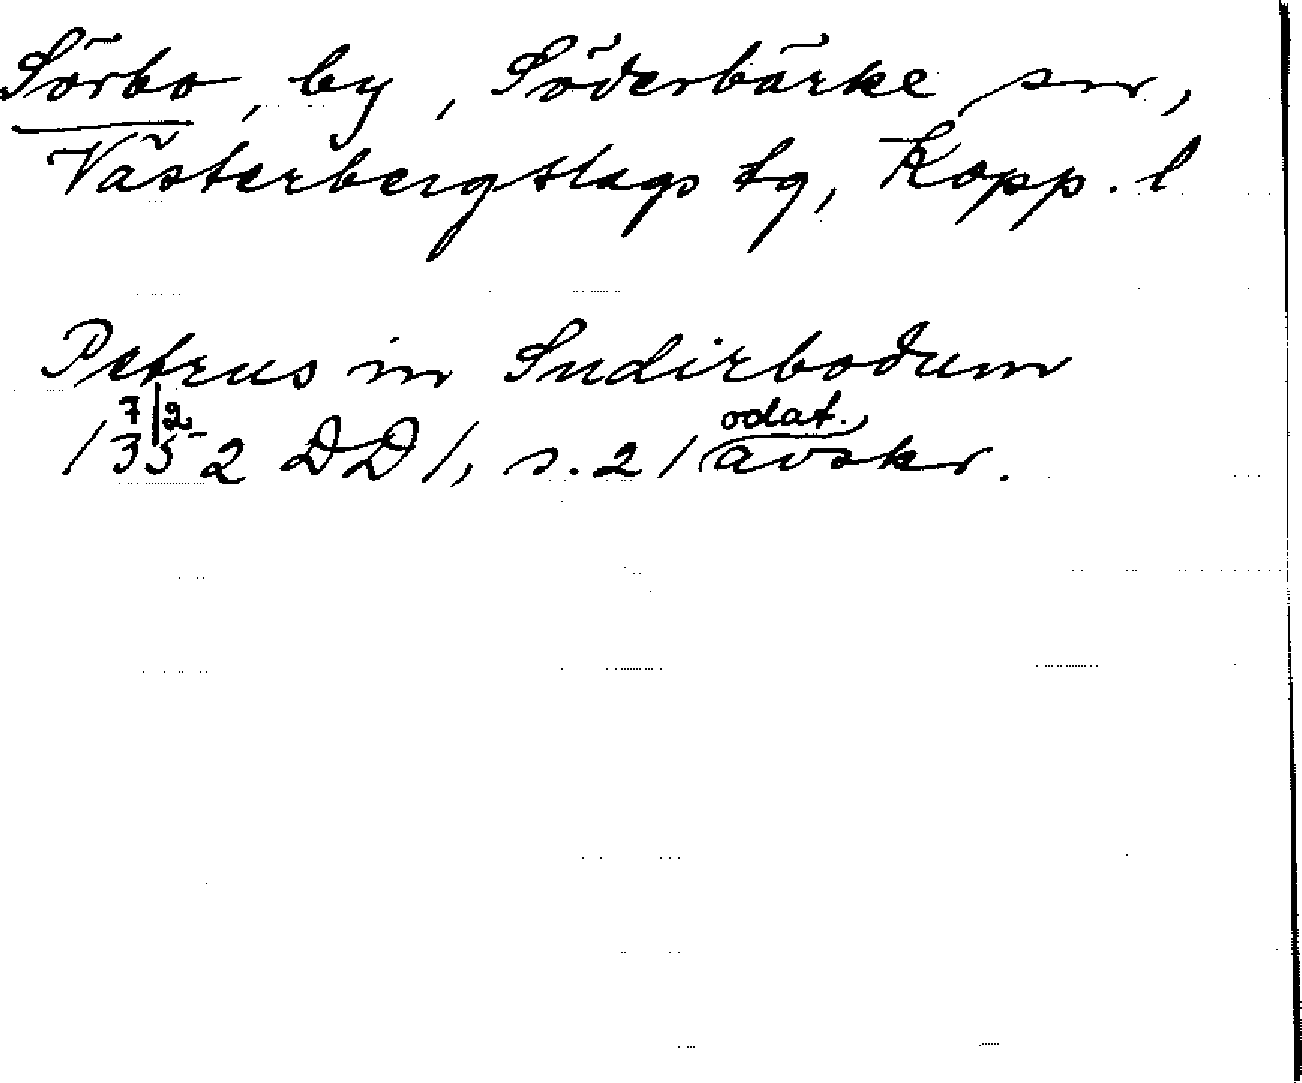 Sörbo, by, Söderbärke sn,
Västerbergslags tg, Kopp. l
Petrus in Sudirbodum
7/2
1352 DD 1, s. 21 odat. avskr.